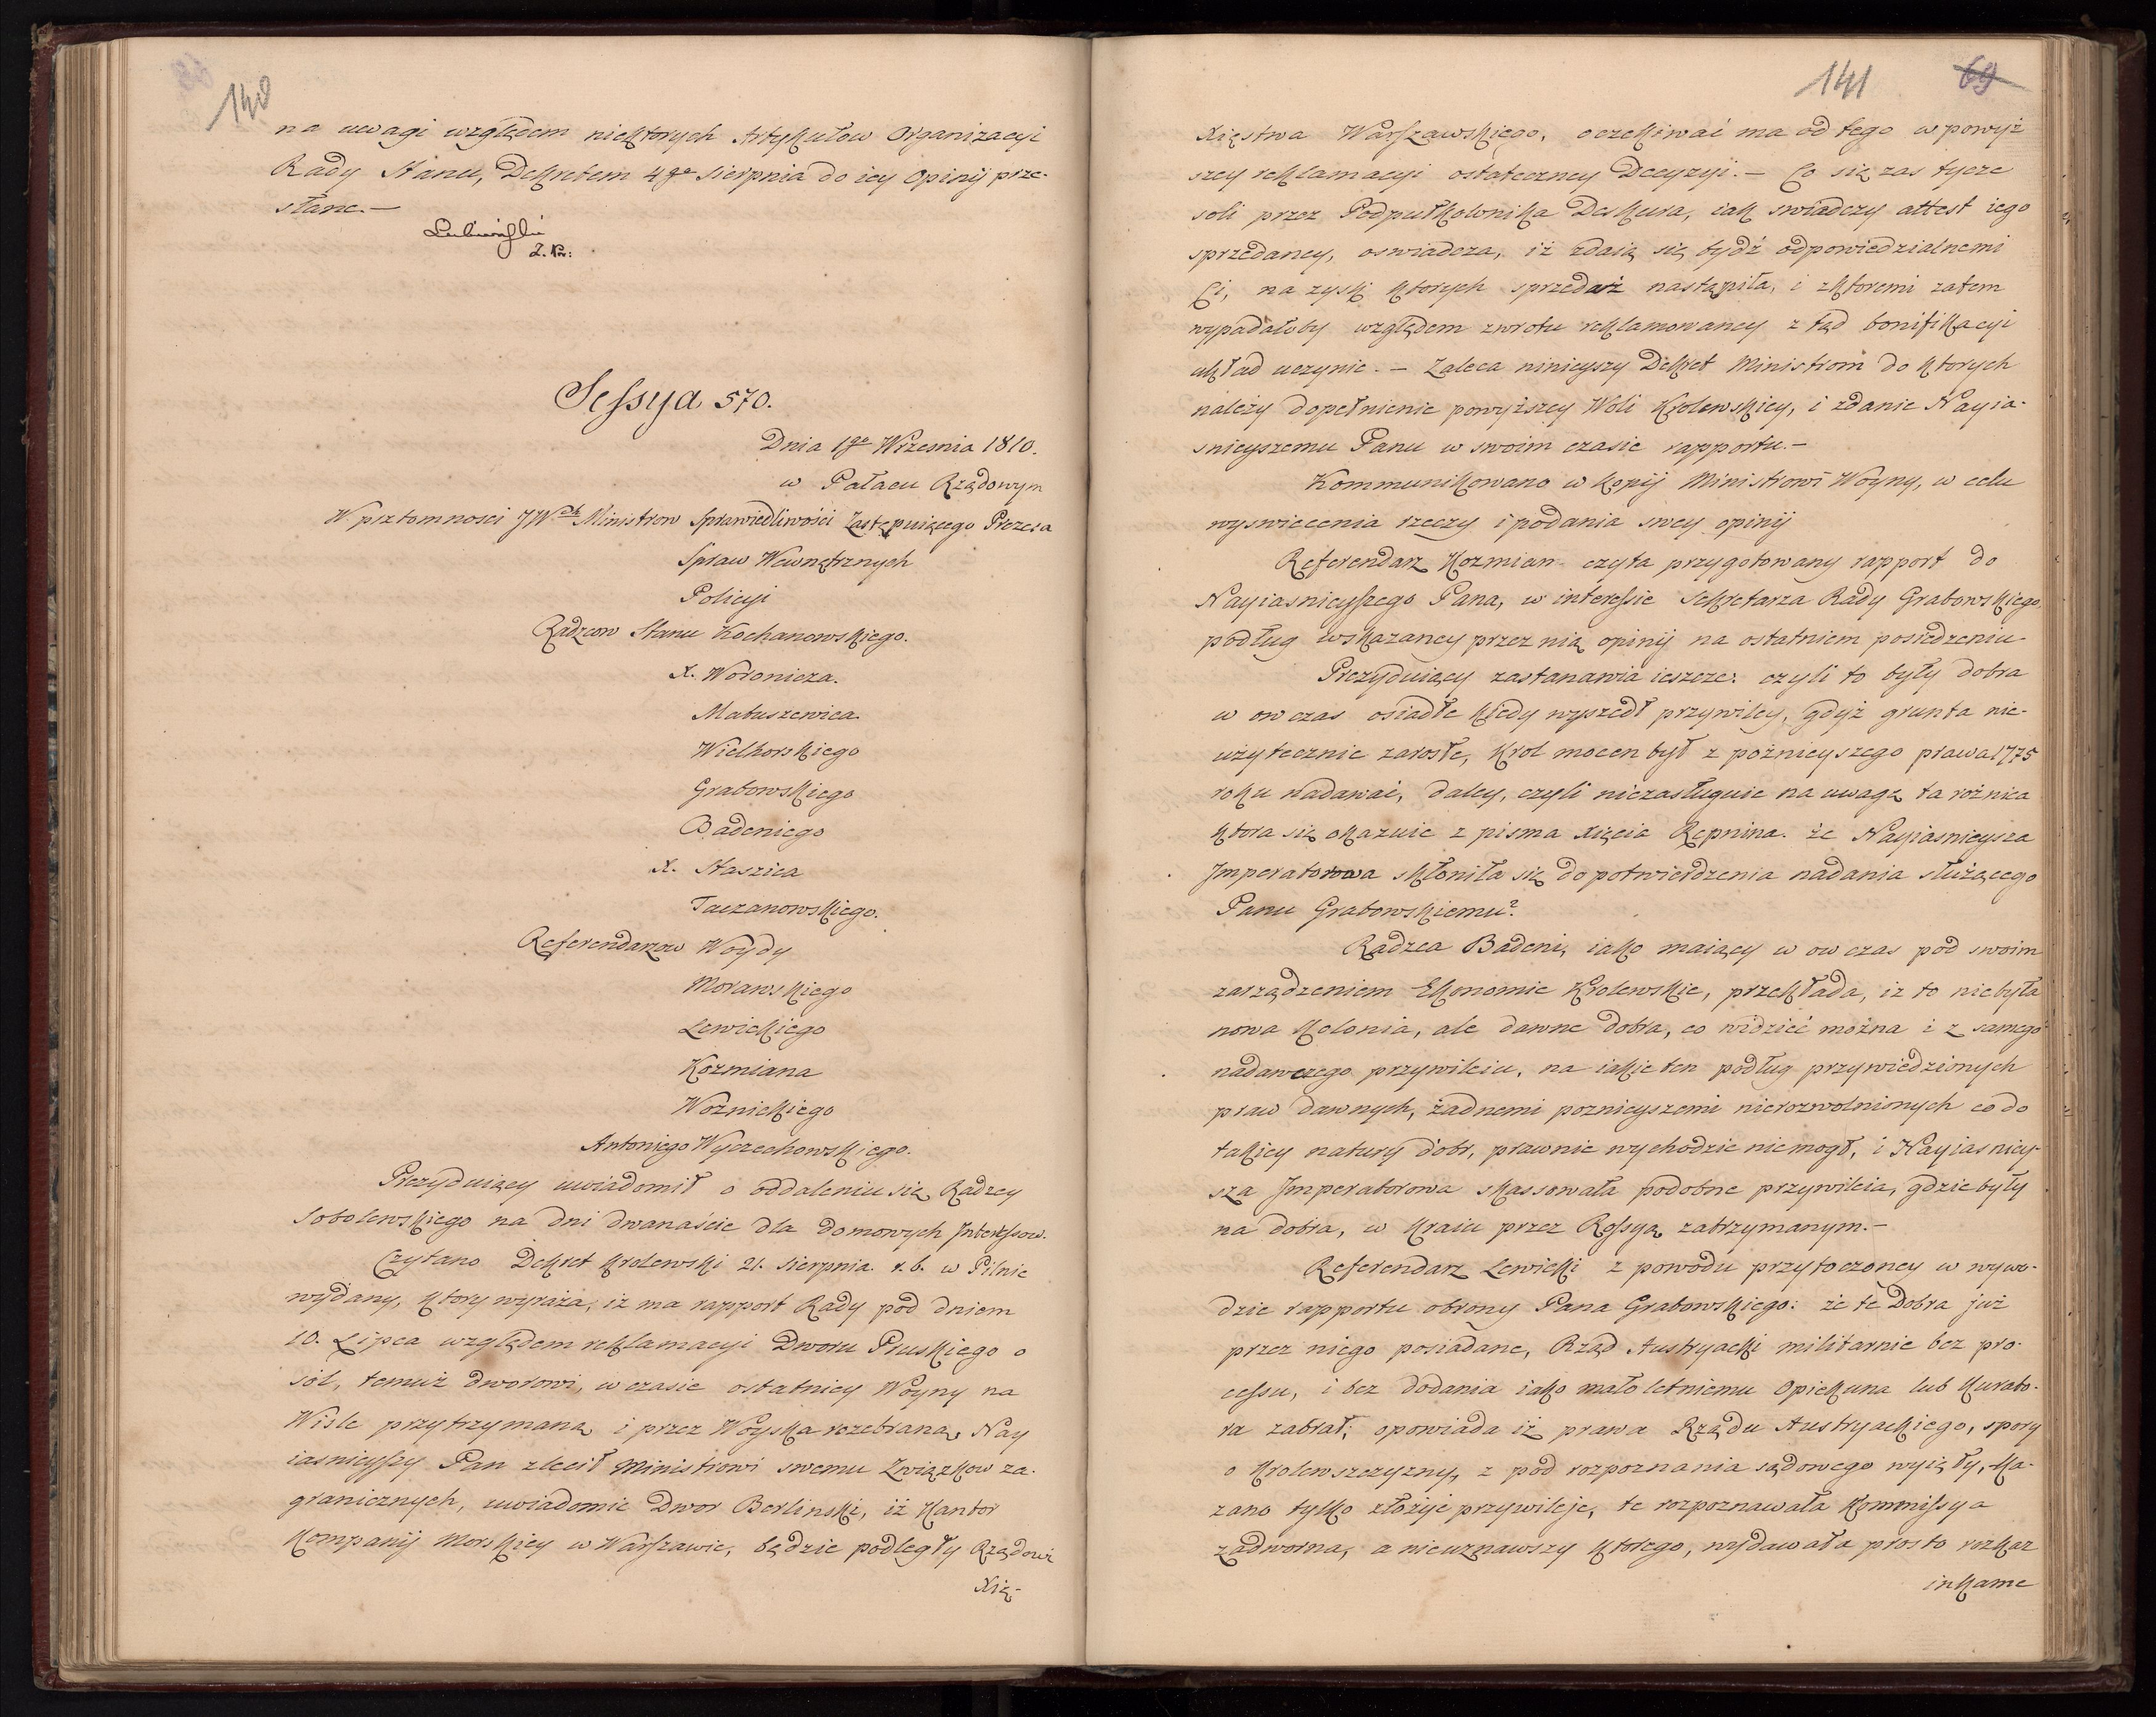 140
na uwagi względem niektorych Artykułow Organizacyi
Rady Stanu, Dekretem 4go Sierpnia do iey Opinij prze-
słane.—
Sessya 570.
Dnia 1go Wrzesnia 1810.
w Pałacu Rządowym
W prztomnosci JWch Ministrow Sprawiedliwości Zastępuiącego Prezesa
Spraw Wewnętrznych
Policyi
Radzcow Stanu Kochanowskiego.
X. Woronicza.
Matuszewica
Wielhorskiego
Grabowskiego
Badeniego
X. Staszica
Taczanowskiego.
Referendarzow Woydy
Morawskiego
Lewickiego
Kozmiana
Woźnickiego
Antoniego Wyczechowskiego.
Prezyduiący uwiadomił o oddaleniu się Radzcy
Sobolewskiego na dni dwanaście dla domowych Interessow.
Czytano Dekret Krolewski 21. Sierpnia r. b. w Pilnic
wydany, ktory wyraża, iż ma rapport Rady pod dniem
10. Lipca względem reklamacyi Dworu Pruskiego o
sól, temuż dworowi, w czasie ostatniey Woyny na
Wisle przytrzymaną i przez Woyska rozebraną, Nay
iasnieyszy Pan zlecił Ministrowi swemu Związkow za-
granicznych, uwiadomic Dwor Berlinski, iż Kantor
Kompanij Morskiey w Warszawie, będzie podległy Rządowi
Xię-
141 69
Xięstwa Warszawskiego, oczekiwać ma od tego w powyż
szey reklamacyi ostateczney Decyzyi.— Co się zas tycze
soli przez Podpułkolonika Deskura, iak swiadczy attest iego
sprzedaney, oswiadcza, iż zdaią się bydź odpowiedzialnemi
Ci, na zysk ktorych sprzedaż nastąpiła, i zktoremi zatem
wypadałoby względem zwrotu reklamowaney z tąd bonifikacyi
układ uczynic.— Zaleca ninieyszy Dekret Ministrom do ktorych
należy dopełnienie powyższey Woli Krolewskiey, i zdanie Nayia-
snieyszemu Panu w swoim czasie rapportu.—
Kommunikowano w kopij Ministrowi Woyny, w celu
wyswiecenia rzeczy i podania swey opinij
Referendarz Kozmian czyta przygotowany rapport do
Nayiasnieyszego Pana, w interessie Sekretarza Rady Grabowskiego
podług wskazaney przez nią opinij na ostatniem posiedzeniu
Prezyduiący zastanawia ieszcze: czyli to były dobra
w ow czas osiadłe kiedy wyszedł przywiley, gdyż grunta nie-
użytecznie zarosłe, Krol mocen był z poźnieyszego prawa 1775
roku nadawać, daley, czyli niezasługuie na uwagę ta rożnica
ktora się okazuie z pisma Xięcia Repnina. że Nayiasnieysza
Imperatorowa skłoniła się do potwierdzenia nadania służącego
Panu Grabowskiemu?
Radzca Badeni, iako maiący w ow czas pod swoim
zarządzeniem Ekonomie Krolewskie, przekłada, iż to niebyła
nowa Kolonia, ale dawne dobra, co widzieć można i z samego
nadawczego przywileiu, na iakie ten podług przywiedzionych
praw dawnych, żadnemi poznieyszemi nierozwolnionych co do
takiey natury dóbr, prawnie wychodzic niemogł, i Nayiasniey-
sza Imperatorowa skassowała podobne przywileia, gdzie były
na dobra, w kraiu przez Rossyą zatrzymanym.—
Referendarz Lewicki z powodu przytoczoney w wywo-
dzie rapportu obrony Pana Grabowskiego: że te Dobra już
przez niego posiadane, Rząd Austryacki militarnie bez pro-
cessu, i bez dodania iako małoletniemu Opiekuna lub Kurato-
ra zabrał; opowiada iż prawa Rządu Austryackiego, spory
o Krolewszczyzny, z pod rozpoznania sądowego wyięły, ka-
zano tylko złożyć przywileje, te rozpoznawała Kommissya
zadworna, a nieuznawszy ktorego, wydawała prosto rozkaz
inkame